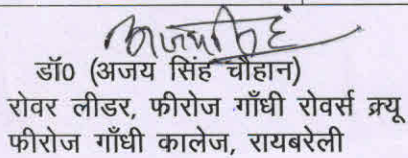 डॉ0 (अजय सिंह चौहान)
रोवर लीडर, फीरोज गाँधी रोवर्स क्र्यू
फीरोज गाँधी कालेज, रायबरेली